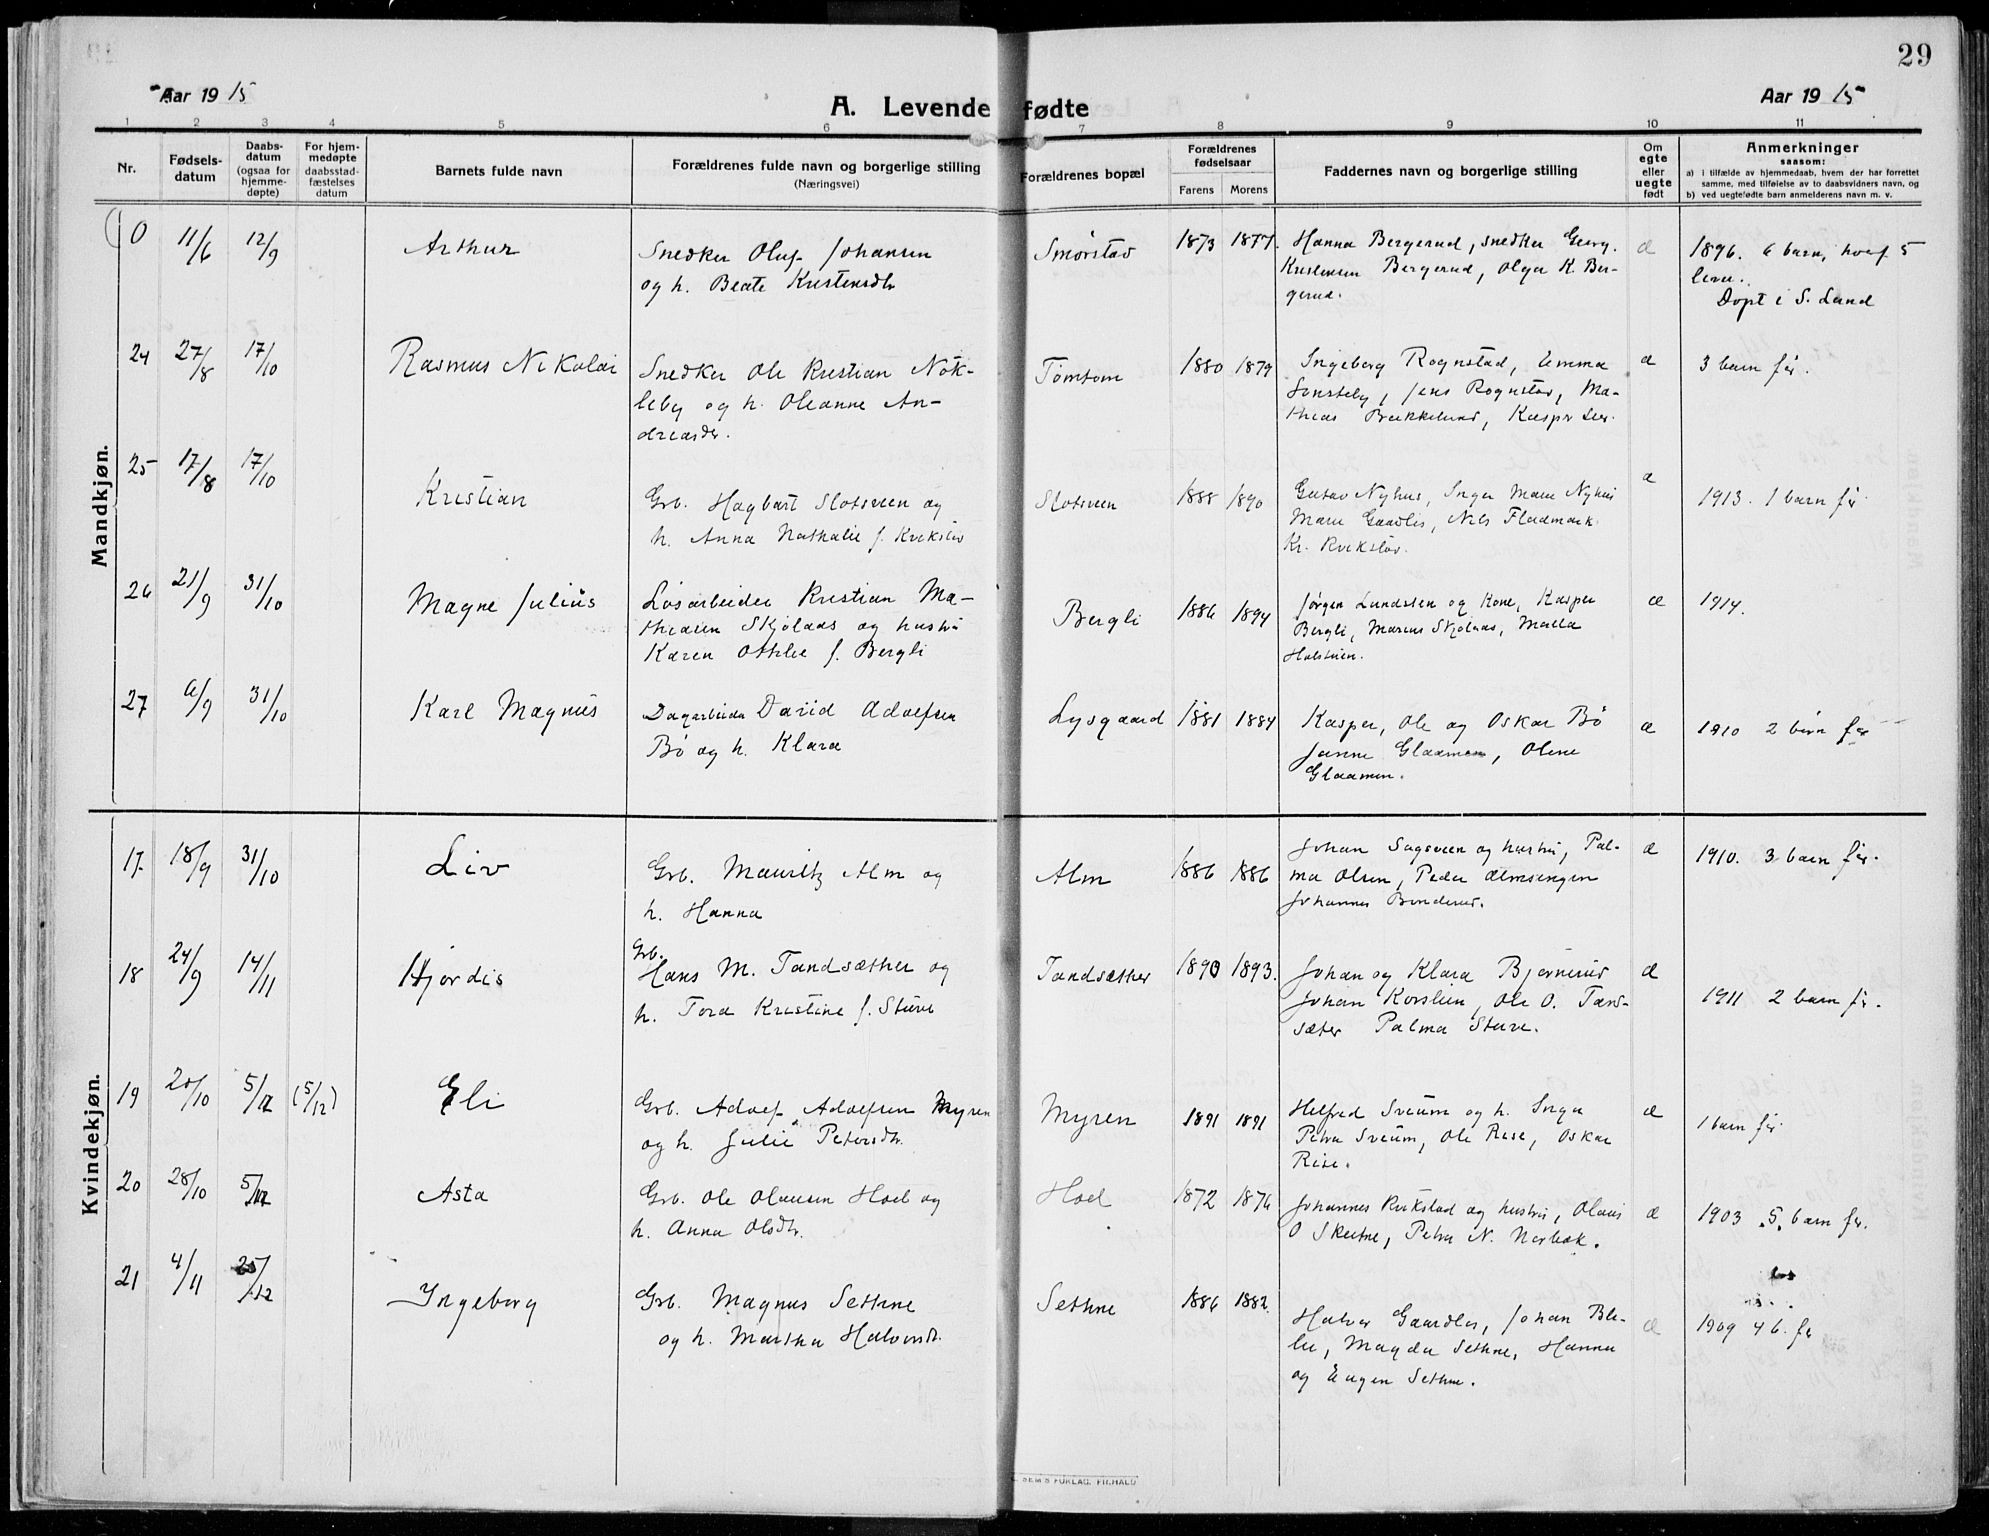 29
Aar 1915
A. Levende fødte
Aar 1915
1 2 3 4 5 6 7 8 9 10 11
Nr.
Fødsels-
datum
Daabs-
datum
(ogsaa for
hjemme-
døpte)
For hjem-
medøpte
daabsstad-
fæstelses
datum
Barnets fulde navn
Forældrenes fulde navn og borgerlige stilling
(Næringsvei)
Forældrenes bopæl
Forældrenes
fødselsaar
Farens Morens
Faddernes navn og borgerlige stilling
Om
egte
eller
uegte
født
Anmerkninger
saasom:
a) i tilfælde av hjemmedaab, hvem der har forrettet
samme, med tilføielse av to daabsvidners navn, og
b) ved uegtefødte barn anmelderens navn m. v.
Mandkjøn.
0 11/6 12/9 Arthur
Snedker Oluf Johansen
og h. Beate Kristensdtr
Smørstad 1873 1877.
Hanna Bergerud, snedker Georg
Kristensen Bergerud, Olga K. Ber-
gerud.
æ
1896. 6 barn, hvoraf 5
lever.
Døpt i S. Land
24 27/8 17/10 Rasmus Nikolai
Snedker Ole Kristian Nøk-
leby og h. Oleanne An-
dreasdr.
Tømtom 1880 1879
Ingeborg Rognstad, Emma
Sønsteby, Jens Rognstad, Ma-
thias Brækkelund, Kasper
æ
3 barn før.
25 17/8 17/10 Kristian
Grb. Hagbart Slotsveen og
h. Anna Nathalie f. Kvikstad
Slotsveen 1888 1890
Gustav Nyhus, Inger Marie Nyhus
Marie Gaardløs, Nils Fladmark
Kr. Kvikstad.
æ
1913. 1 barn før
26 21/9 31/10 Magne Julius
Løsarbeider Kristian Ma-
thiasen Skjølaas og hustru
Karen Othilie f. Bergli
Bergli 1886 1894
Jørgen Lundsten og Kone, Kasper
Bergli, Marius Skjølaas, Malla
Holstuen.
æ
1914.
27 6/9 31/10 Karl Magnus
Dagarbeider David Adolfsen
Bø og h. Klara
Lysgaard 1881 1884
Kasper, Ole og Oskar Bø
Janne Glaamen, Oline
Glaamen.
æ
1910 2 barn før
Kvindekjøn.
17. 18/9 31/10 Liv
Grb. Mauritz Alm og
h. Hanna
Alm 1886 1886
Johan Sagsveen og hustru, Pal-
ma Olsen, Peder Almsengen
Johannes Bonderud.
æ
1910. 3 barn før.
18 24/9 14/11 Hjørdis
Grb.
Hans M. Tandsæther og
h. Tora Kristine f. Stuve
Tandsæther 1890 1893.
Johan og Klara Bjørnerud
Johan Korslien, Ole O. Tand-
sæter Palma Stuve.
æ
1911 2 barn før.
19 20/10 5/12 (5/12) Eli
Grb. Adolf Adolfsen Myren
og h. Julie Petersdtr.
Myren 1891 1891
Helfred Sveum og h. Inga
Petra Sveum, Ole Rise, Oskar
Rise.
æ
1 barn før
20 28/10 5/12 Asta
Grb. Ole Olausen Hoel og
h. Anna Olsdtr.
Hoel 1872 1876
Johannes Kvikstad og hustru, Olaus
O Skutne, Petra N. Norbæk.
æ
1903 5 barn før.
21 4/11 25/12 Ingeborg
Grb. Magnus Sethne
og h. Martha Halvorsdtr.
Sethne 1886 1882.
Halvor Gaardløs, Johan Ble-
lie, Magda Sethne, Hanna
og Eugen Sethne.
æ
1909 4 b. før
SEM'S FORLAG, FR.HALD